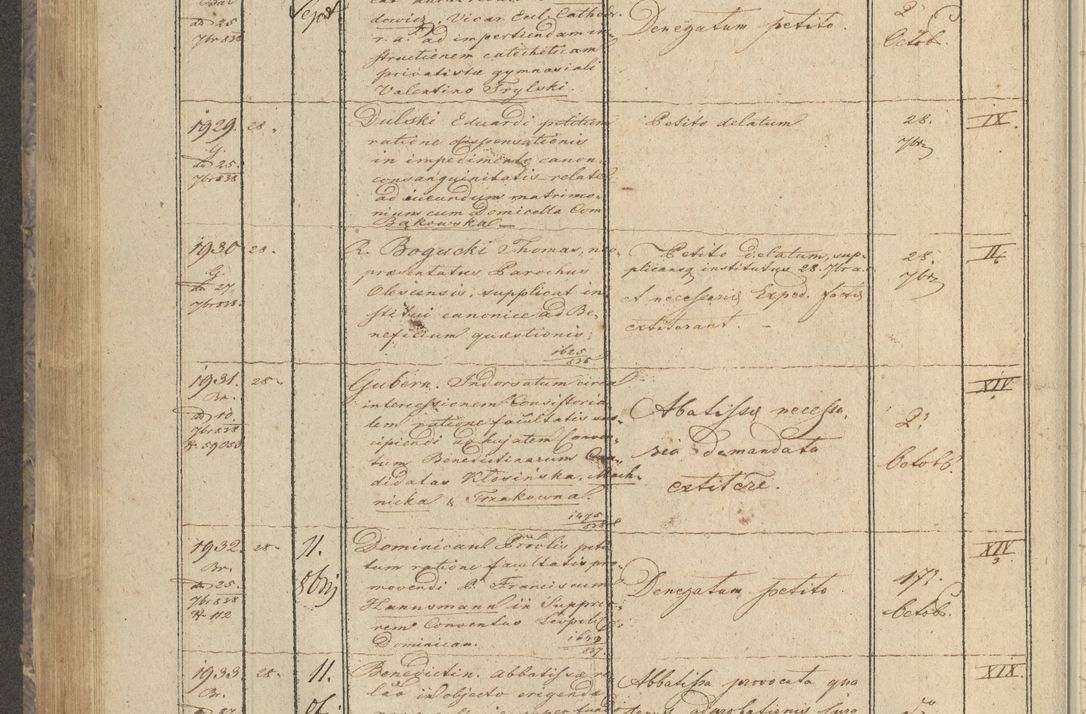 dd 25
7br 838
dowicz, Vicar. Eccl. Cathedr.
r. a. ad impertiendam in
structionem catecheticam
privatistae gymnasiali
Valentino Trylski.
Denegatum petito.
2
Octob.
1929. 28.
G.
dd 25.
7br 838
Dulski Eduardi petitum
ratione dispensationis
in impedimento canon.
consanguinitatis relate
ad ineundum matrimo-
nium cum Domicella Com
Bakowska
Petito delatum
28.
7br
IX.
1930 28.
G.
dd 27.
7br 838.
R. Bogucki Thomas, neo
praesentatus Parochus
Olescensis, supplicat in
stitui canonice ad Be-
neficium quaestionis.
1625
838
Petito delatum, sup-
plicansq institutus 28. 7br a. c.
et necessariae Exped. factae
extiterant.
28.
7br
II.
1931. 28.
Br.
dd 10.
7br 838
# 59053
Gubern. Indorsatum circa
intercessionem Consistoria
lem ratione facultatis sus
cipiendi
tum Benedictinarum Can-
didatas Kłosińska, Mach-
nicka & Trzakowna.
1475
838
Abatissae necessa
ria demandata
extitere.
2.
Octobr.
XIV.
1932. 28.
Br.
dd 25.
7br 838
# 112
11.
8brij
Dominicani Provlis peti-
tum ratione facultatis pro
movendi P. Franciscum
Hannsmann in Supprio-
rem Conventus Leopol.
Dominican.
1649
837.
Denegatum petito
17.
Octob.
XIV
3
1933 28.
Br.
11.
Benedictin. abbatissae re
latio in objecto erigenda
Abbatissa provocata qua
XIX.